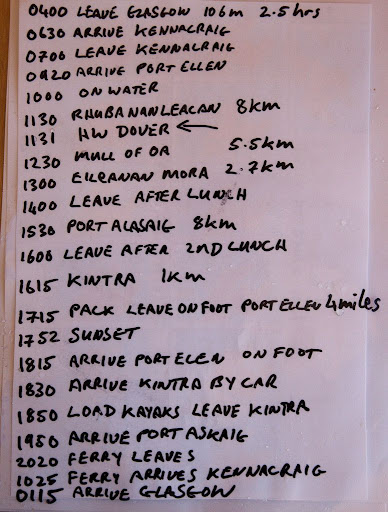 0400 LEAVE GLASGOW 106m 2.5hrs
0630 ARRIVE KENNACRAIG
0700 LEAVE KENNACRAIG
0920 ARRIVE PORT ELLEN
1000 ON WATER
1130 RHUBANANLEACAN 8km
1131 HW DOVER ←
1230 MULL OF OA 5.5km
1300 EILEANAN MORA 2.7km
1400 LEAVE AFTER LUNCH
1530 PORT ALASAIG 8km
1600 LEAVE AFTER 2ND LUNCH
1615 KINTRA 1km
1715 PACK LEAVE ON FOOT PORT ELLEN 4miles
1752 SUNSET
1815 ARRIVE PORT ELEN ON FOOT
1830 ARRIVE KINTRA BY CAR
1850 LOAD KAYAKS LEAVE KINTRA
1950 ARRIVE PORT ASKAIG
2020 FERRY LEAVES
1025 FERRY ARRIVES KENNACRAIG
0115 ARRIVE GLASGOW